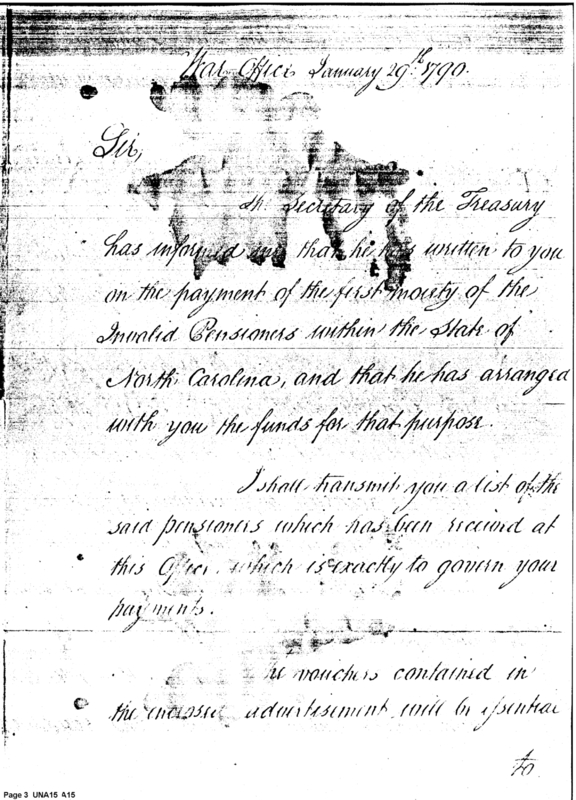 War Office January 29th. 1790.
Sir,
The Secretary of the Treasury
has informed me that he has written to you
on the payment of the first moiety of the
Invalid Pensioners within the State of
North Carolina, and that he has arranged
with you the funds for that purpose.
I shall transmit you a list of the
said pensioners which has been received at
this Office, which is exactly to govern your
payments.
he vouchers contained in
the enclosed advertisement will be essential
to
Page 3 UNA15 A15